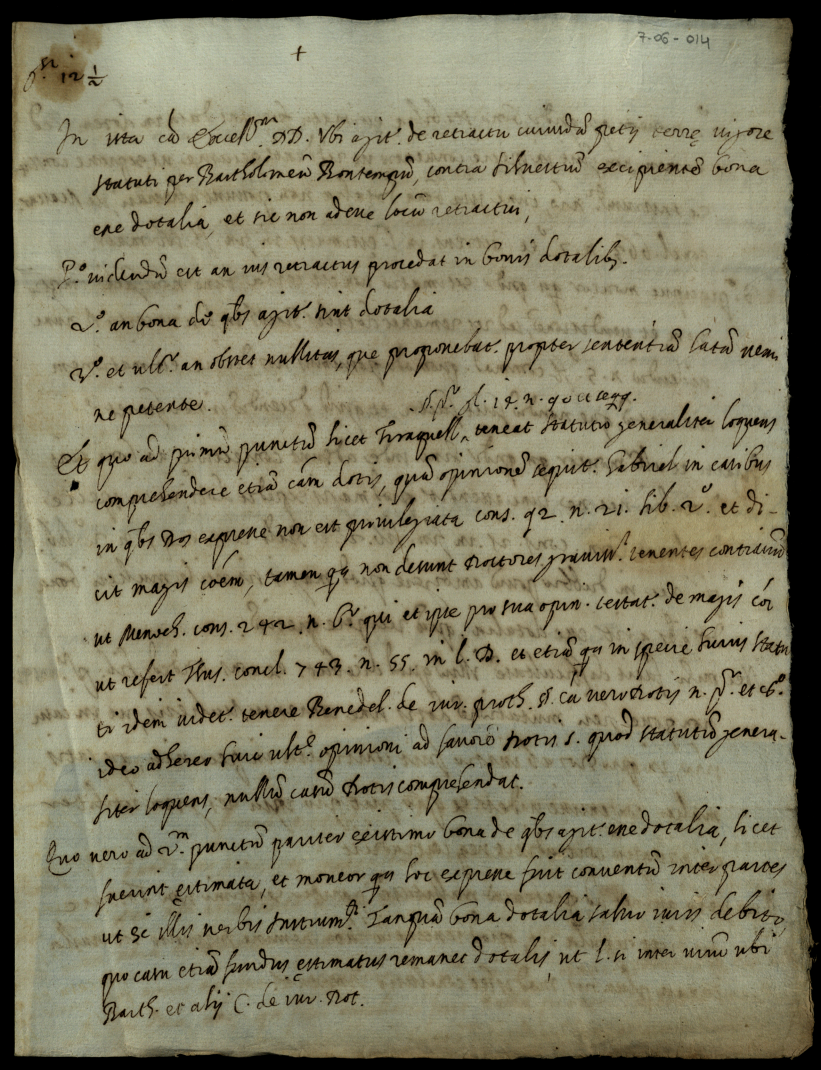 7-06-014
+
12 ½
In ista cã Excell.ᵐ DD. Ubi agit.ʳ de retractu cuiusdã petij terrę vigore
statuti per Bartholomeũ Bontempũ, contra Silvestrũ excipientẽ bona
esse dotalia, et sic non adesse locũ retractui,
P.º videndũ est an ius retractus procedat in bonis dotalib.
2.º an bona de qbs agit.ʳ sint dotalia
3.º et ult.º an obstet nullitas, que proponebat.ʳ propter sententiã latã nemi
ne petente.
fl. 14. n. 90 et seqq.
Et quo ad primũ punctũ licet Tiraquell. teneat statutũ generaliter loquens
comprehendere etiã cãm dotis, quã opinionẽ sequit.ʳ Gabriel in casibus
in qbs Dos expresse non est privilegiata cons. 92. n. 21. lib. 2.º et di-
cit magis coẽm, tamen qa non desunt Doctores graviss.ⁱ tenentes contrariũ
ut Menoch. cons. 242. n. qui et ipse pro sua opin. testat.ʳ de magis cõi
ut refert Thus. concl. 743. n. 55. in l. D. et etiã qa in specie huius statu
ti idem videt.ʳ tenere Benedel. de iur. proth. cã vero Dotis n. et
ideo adhereo huic ult.ᵉ opinioni ad favorẽ Dotis s. quod statutũ genera-
liter loquens, nullũ casũ Dotis comprehendat.
Quo vero ad 2.ᵐ punctũ pariter existimo bona de qbs agit.ʳ esse dotalia, licet
fuerint ęstimata, et moneor qa hoc expresse fuit conventũ inter partes
ut ĩ illis verbis Instrum.ᵗⁱ Tanquã bona dotalia salvo iuris debito,
quo casu etiã fundus ęstimatus remanet dotalis, ut l. si inter virũ ubi
Barth. et alij C. de iur. Dot.